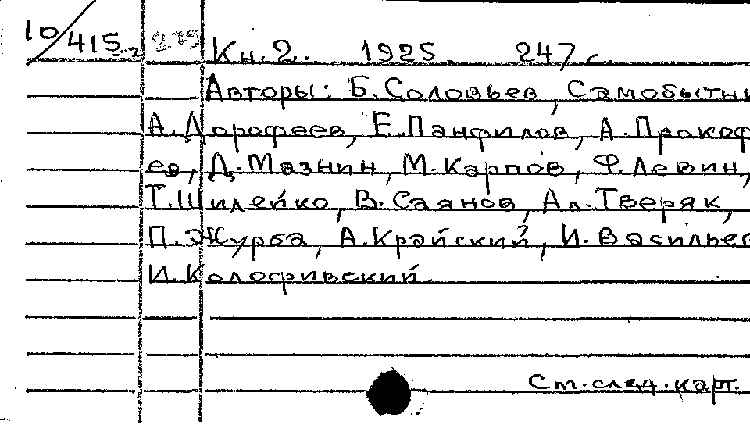 10/415-2 275 Кн.2. 1925. 247 с.
Авторы: Б.Соловьев, Самобытни
А.Дорофеев, Е.Панфилов, А.Прокоф
ев, Д.Мазнин, М.Карпов, Ф.Левин,
Т.Шилейко, В.Саянов, Ал.Тверяк,
П.Журба, А.Крайский, И.Васильев
И.Колофривский.
См.след.карт.